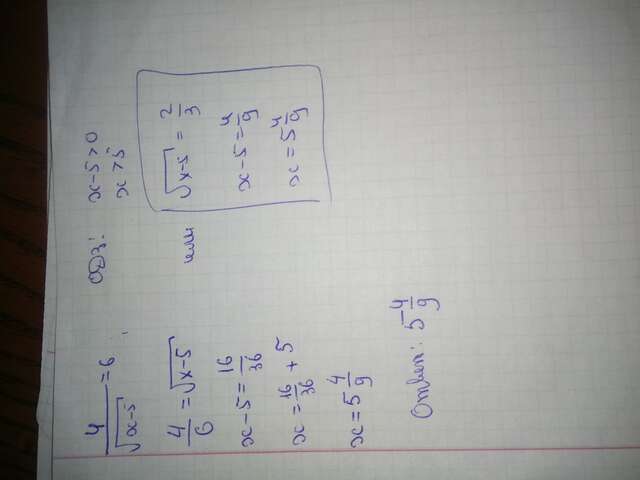 4/√(x-5) = 6, ОДЗ: x-5>0
x>5
4/6 = √(x-5) или √(x-5) = 2/3
x-5 = 16/36 x-5 = 4/9
x = 16/36 + 5 x = 5 4/9
x = 5 4/9
Ответ: 5 4/9